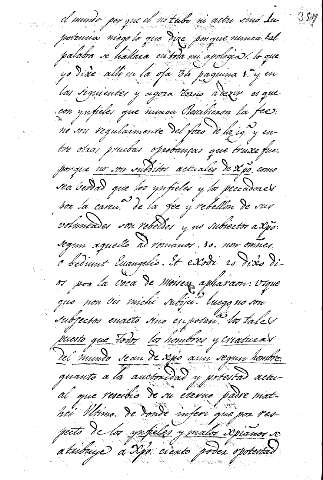 el mundo por que el no tubo ni actu sino In
potencia niego lo que dize porque nunca tal
palabra se hallara en toda mi apologia. lo que
yo dixe alli en la ofa 34 pagina 2. y en
las siguientes y agora torno a dezir es que
con ynfieles que nunca Recibieron la fee
no son regularmente del foro de la ygª y en
tre otras pruebas o probanças que truxe fue
porque no son subditos actuales de Xpo. como
sea verdad que los ynfieles y los pecadores
por la carenª de la fee y rebellion de sus
voluntades son rebeldes y no subiectos a Xpo.
segun aquello ad romanos. 10. non omnes
obediunt Euangelio. Et Exodi 10 dixo di
os por la boca de Moisen a pharaon: vsque
quo non vis mihi subijci. luego no son
subjectos en acto sino en potenª. los tales
puesto que todos los hombres y criaturas
del mundo sean de Xpo aun segun hombre
quanto a la auctoridad y potestad actu
al que rescibio de su eterno padre mat
hei Ultimo. de donde inferi que por res
pecto de los ynfieles y malos xpianos se
atribuye a Xpo. cierto poder o potestad